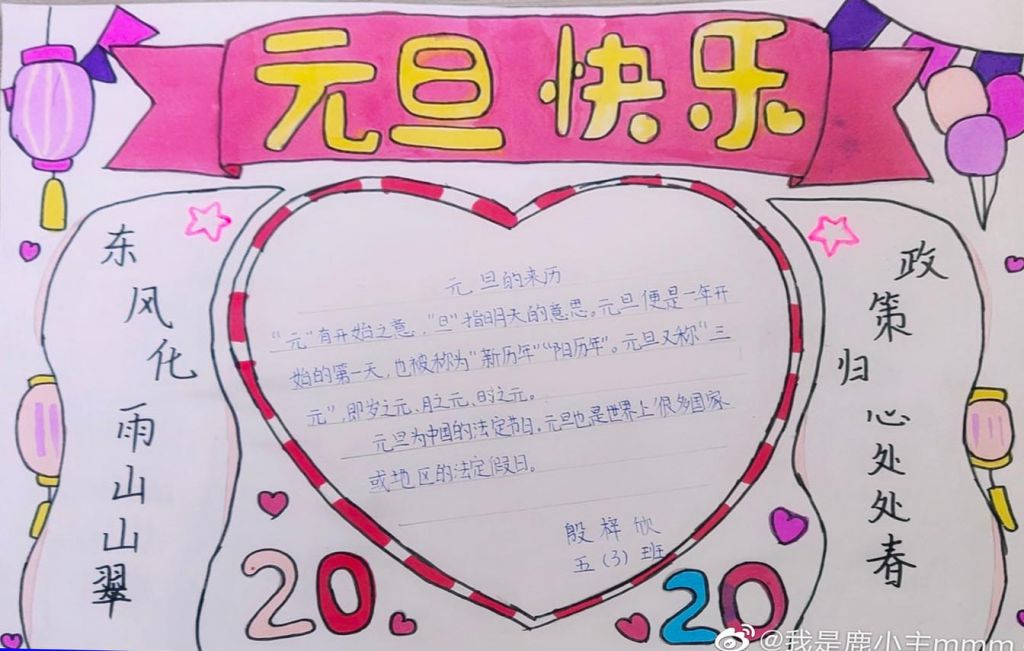 元旦快乐
东风化雨山山翠
政策归心处处春
元旦的来历
“元”有开始之意,“旦”指明天的意思。元旦便是一年开
始的第一天,也被称为“新历年”“阳历年”。元旦又称“三
元”,即岁之元、月之元、时之元。
元旦为中国的法定节日,元旦也是世界上很多国家
或地区的法定假日。
殷梓欣
五(3)班
2020
@我是鹿小主mmm